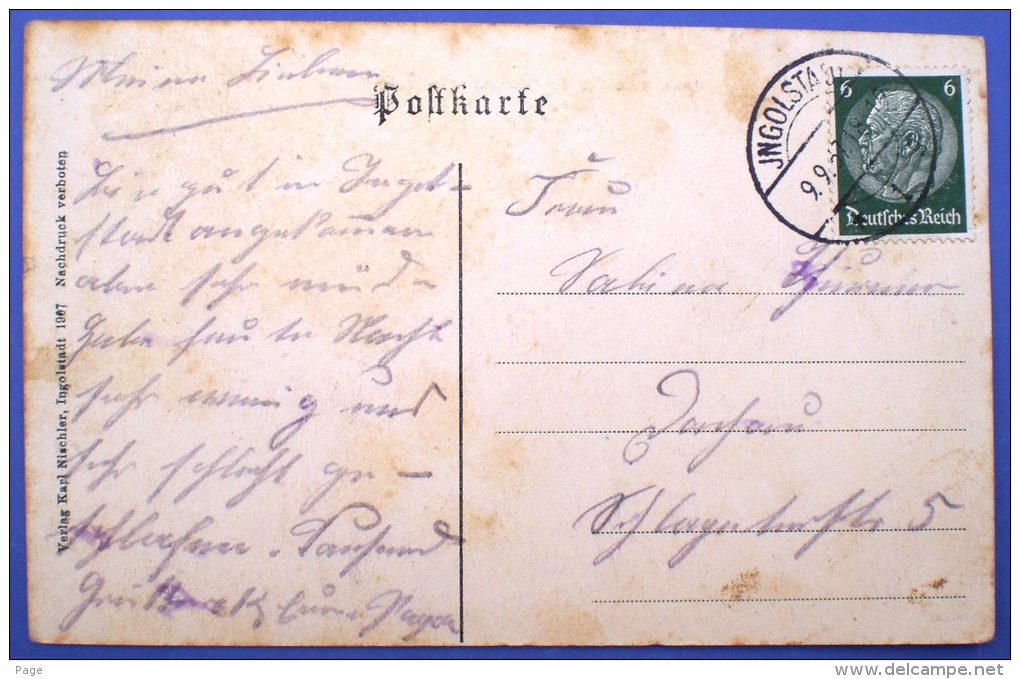 Meine Lieben
Postkarte
Bin gut in Ingol-
stadt angekommen
aber sehr müde
Habe heute Nacht
sehr wenig und
sehr schlecht ge-
schlafen. Tausend
Grüße Euer Papa
Frau
Sabine
Dachau
Schlageterstr 5
INGOLSTADT
9.9.
6 6
Deutsches Reich
Verlag Karl Nischler, Ingolstadt 1907 Nachdruck verboten
Page
www.delcampe.net